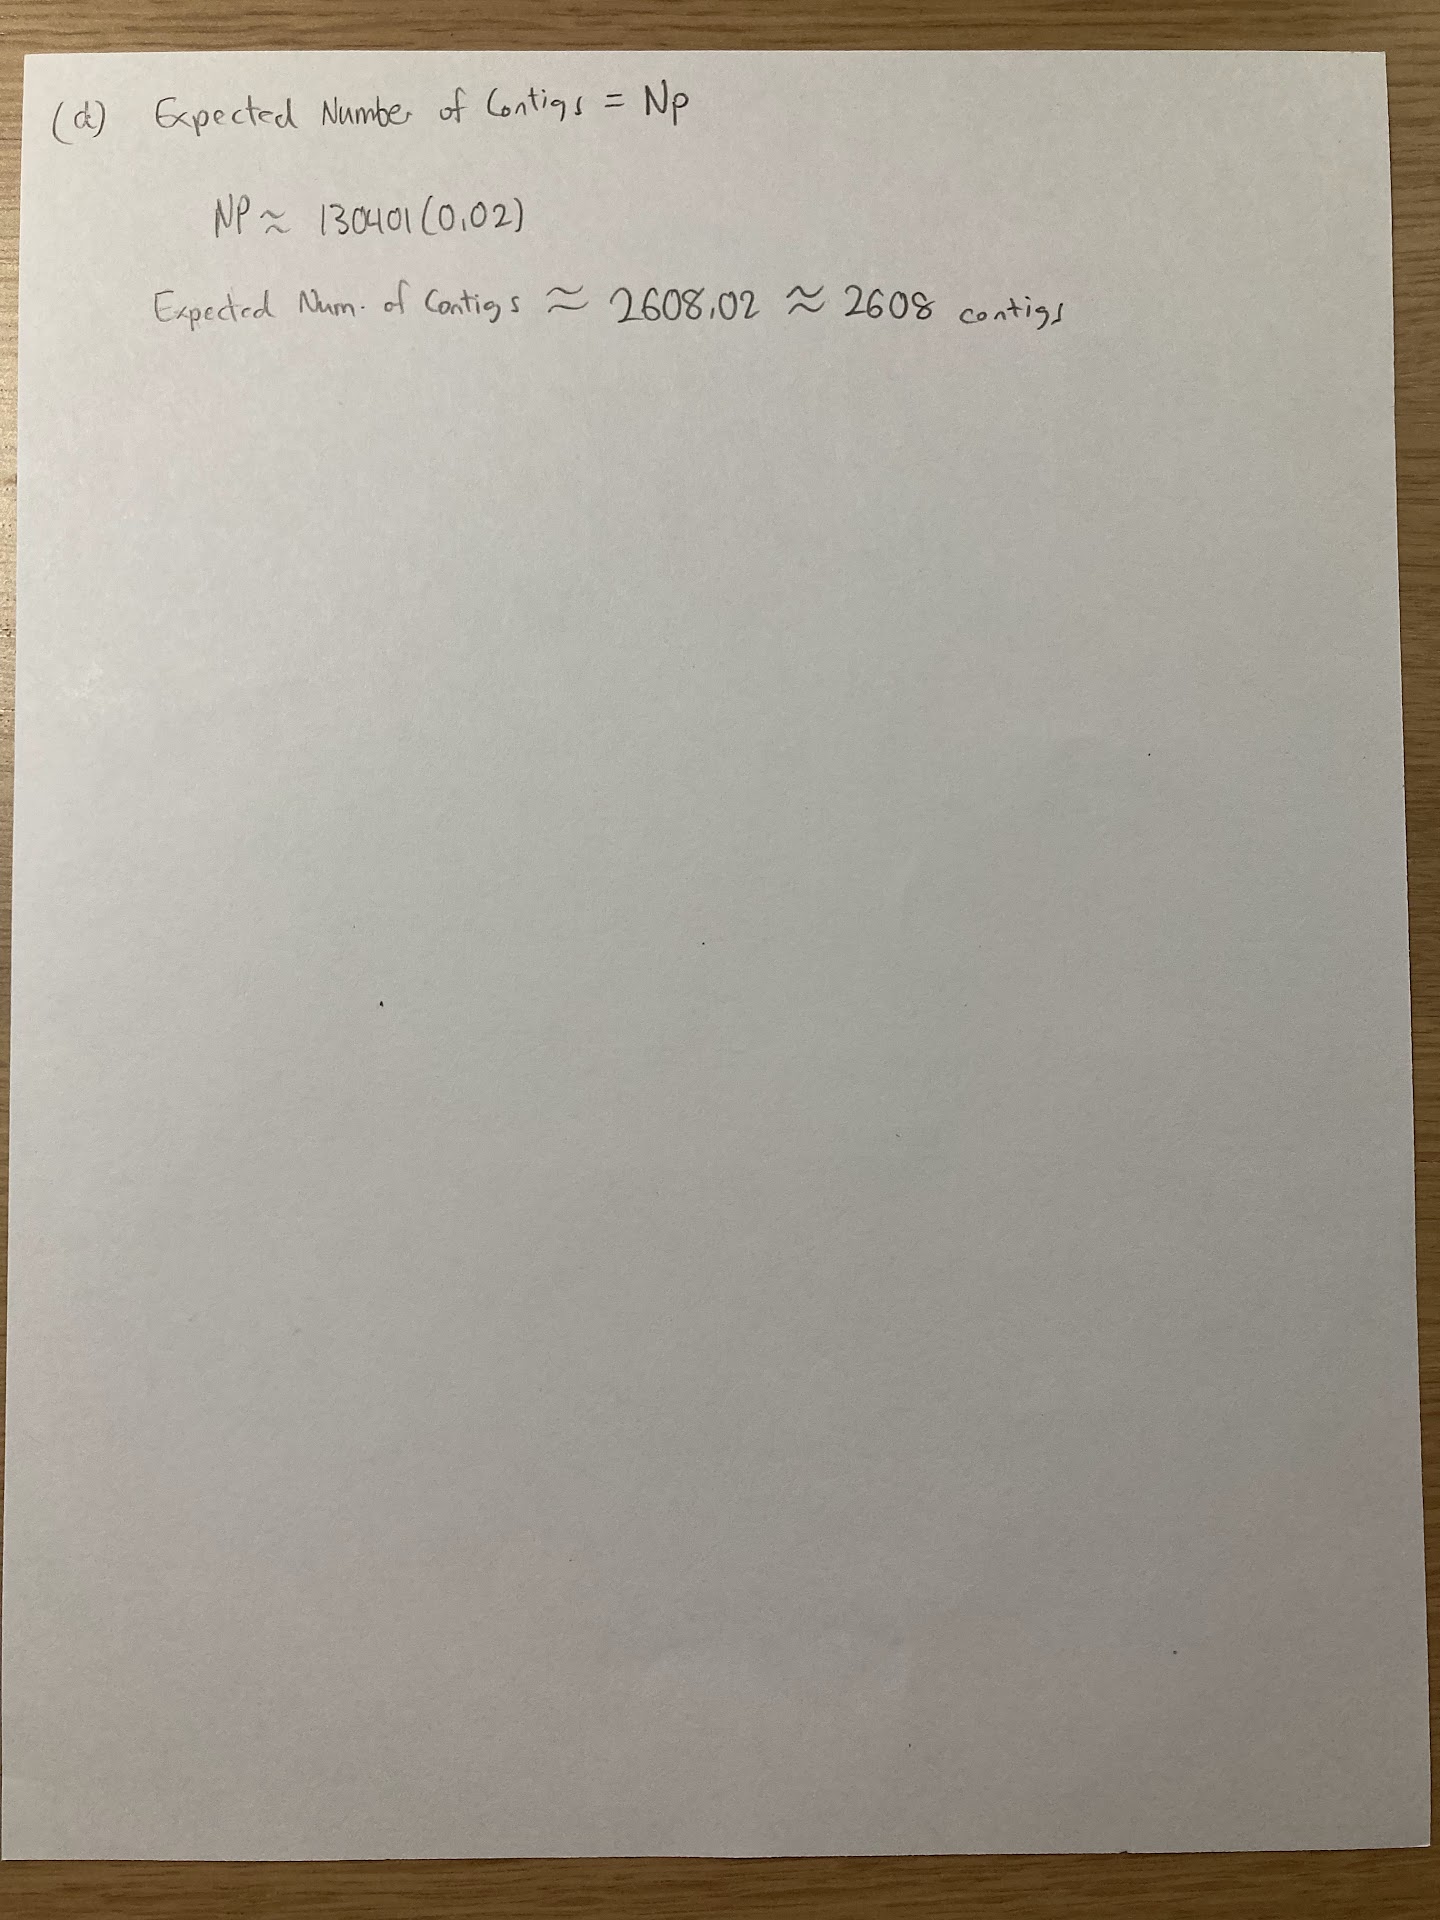 (d) Expected Number of Contigs = Np
NP ≈ 130401(0.02)
Expected Num. of Contigs ≈ 2608.02 ≈ 2608 contigs